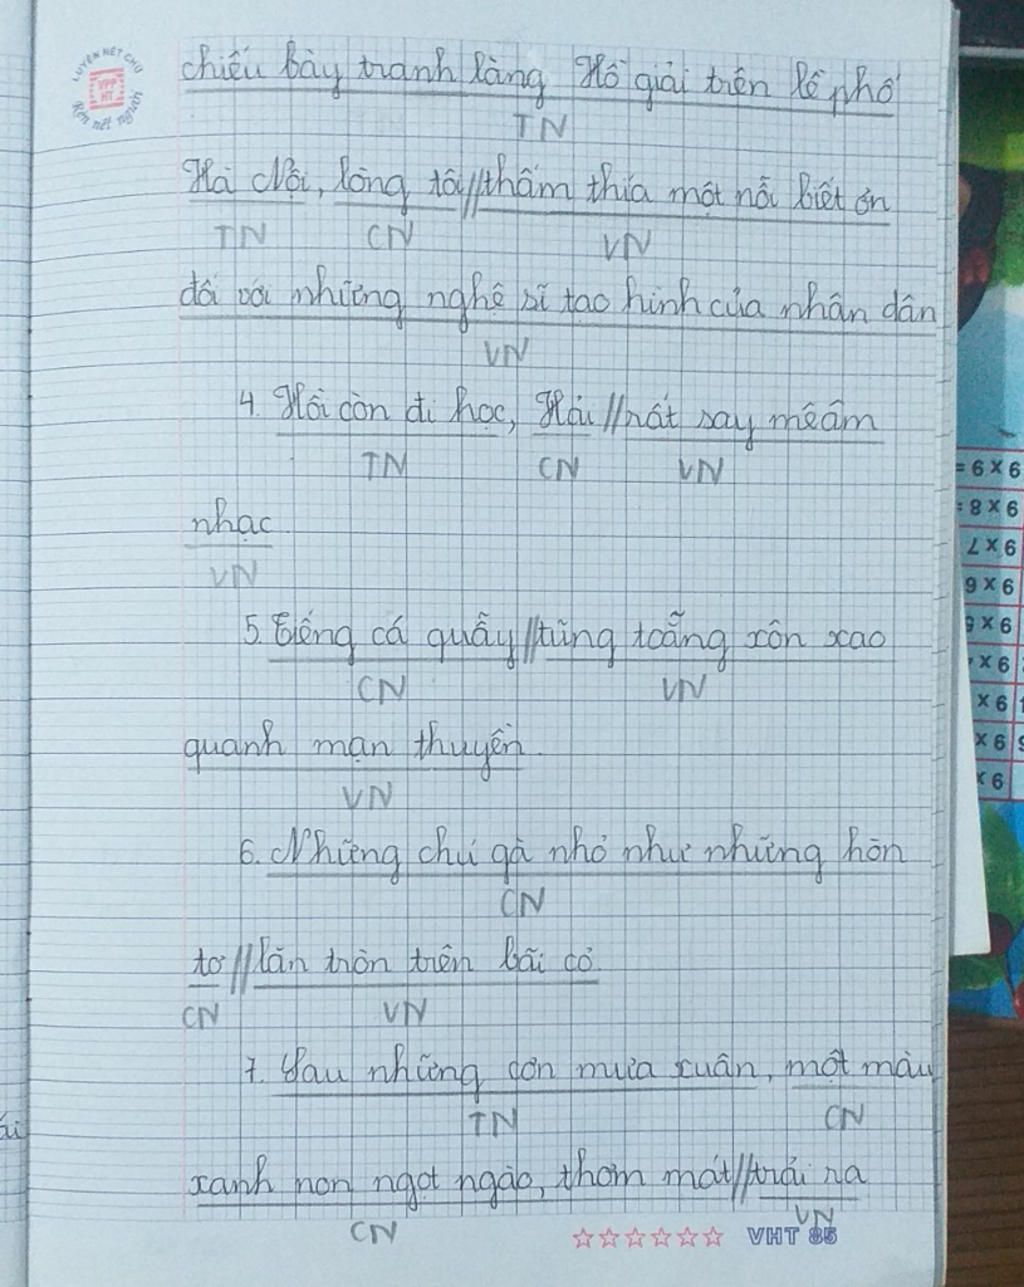 LUYỆN NÉT CHỮ
VPP
HT
Rèn nết người
chiếu bày tranh làng Hồ giải trên lề phố
TN
Hà Nội, lòng tôi//thấm thía một nỗi biết ơn
TN CN VN
đối với những nghệ sĩ tạo hình của nhân dân
VN
4. Hồi còn đi học, Hải//rất say mê âm
TN CN VN
nhạc.
VN
5. Tiếng cá quẫy//tũng toẵng xôn xao
CN VN
quanh mạn thuyền.
VN
6. Những chú gà nhỏ như những hòn
CN
tơ//lăn tròn trên bãi cỏ.
CN VN
7. Sau những cơn mưa xuân, một màu
TN CN
xanh non ngọt ngào, thơm mát//trải ra
CN VN
VHT 85
9 x 9 =
9 x 8 =
9 x 7
9 x 6
9 x 5
9 x
9 x
9 x
9 x